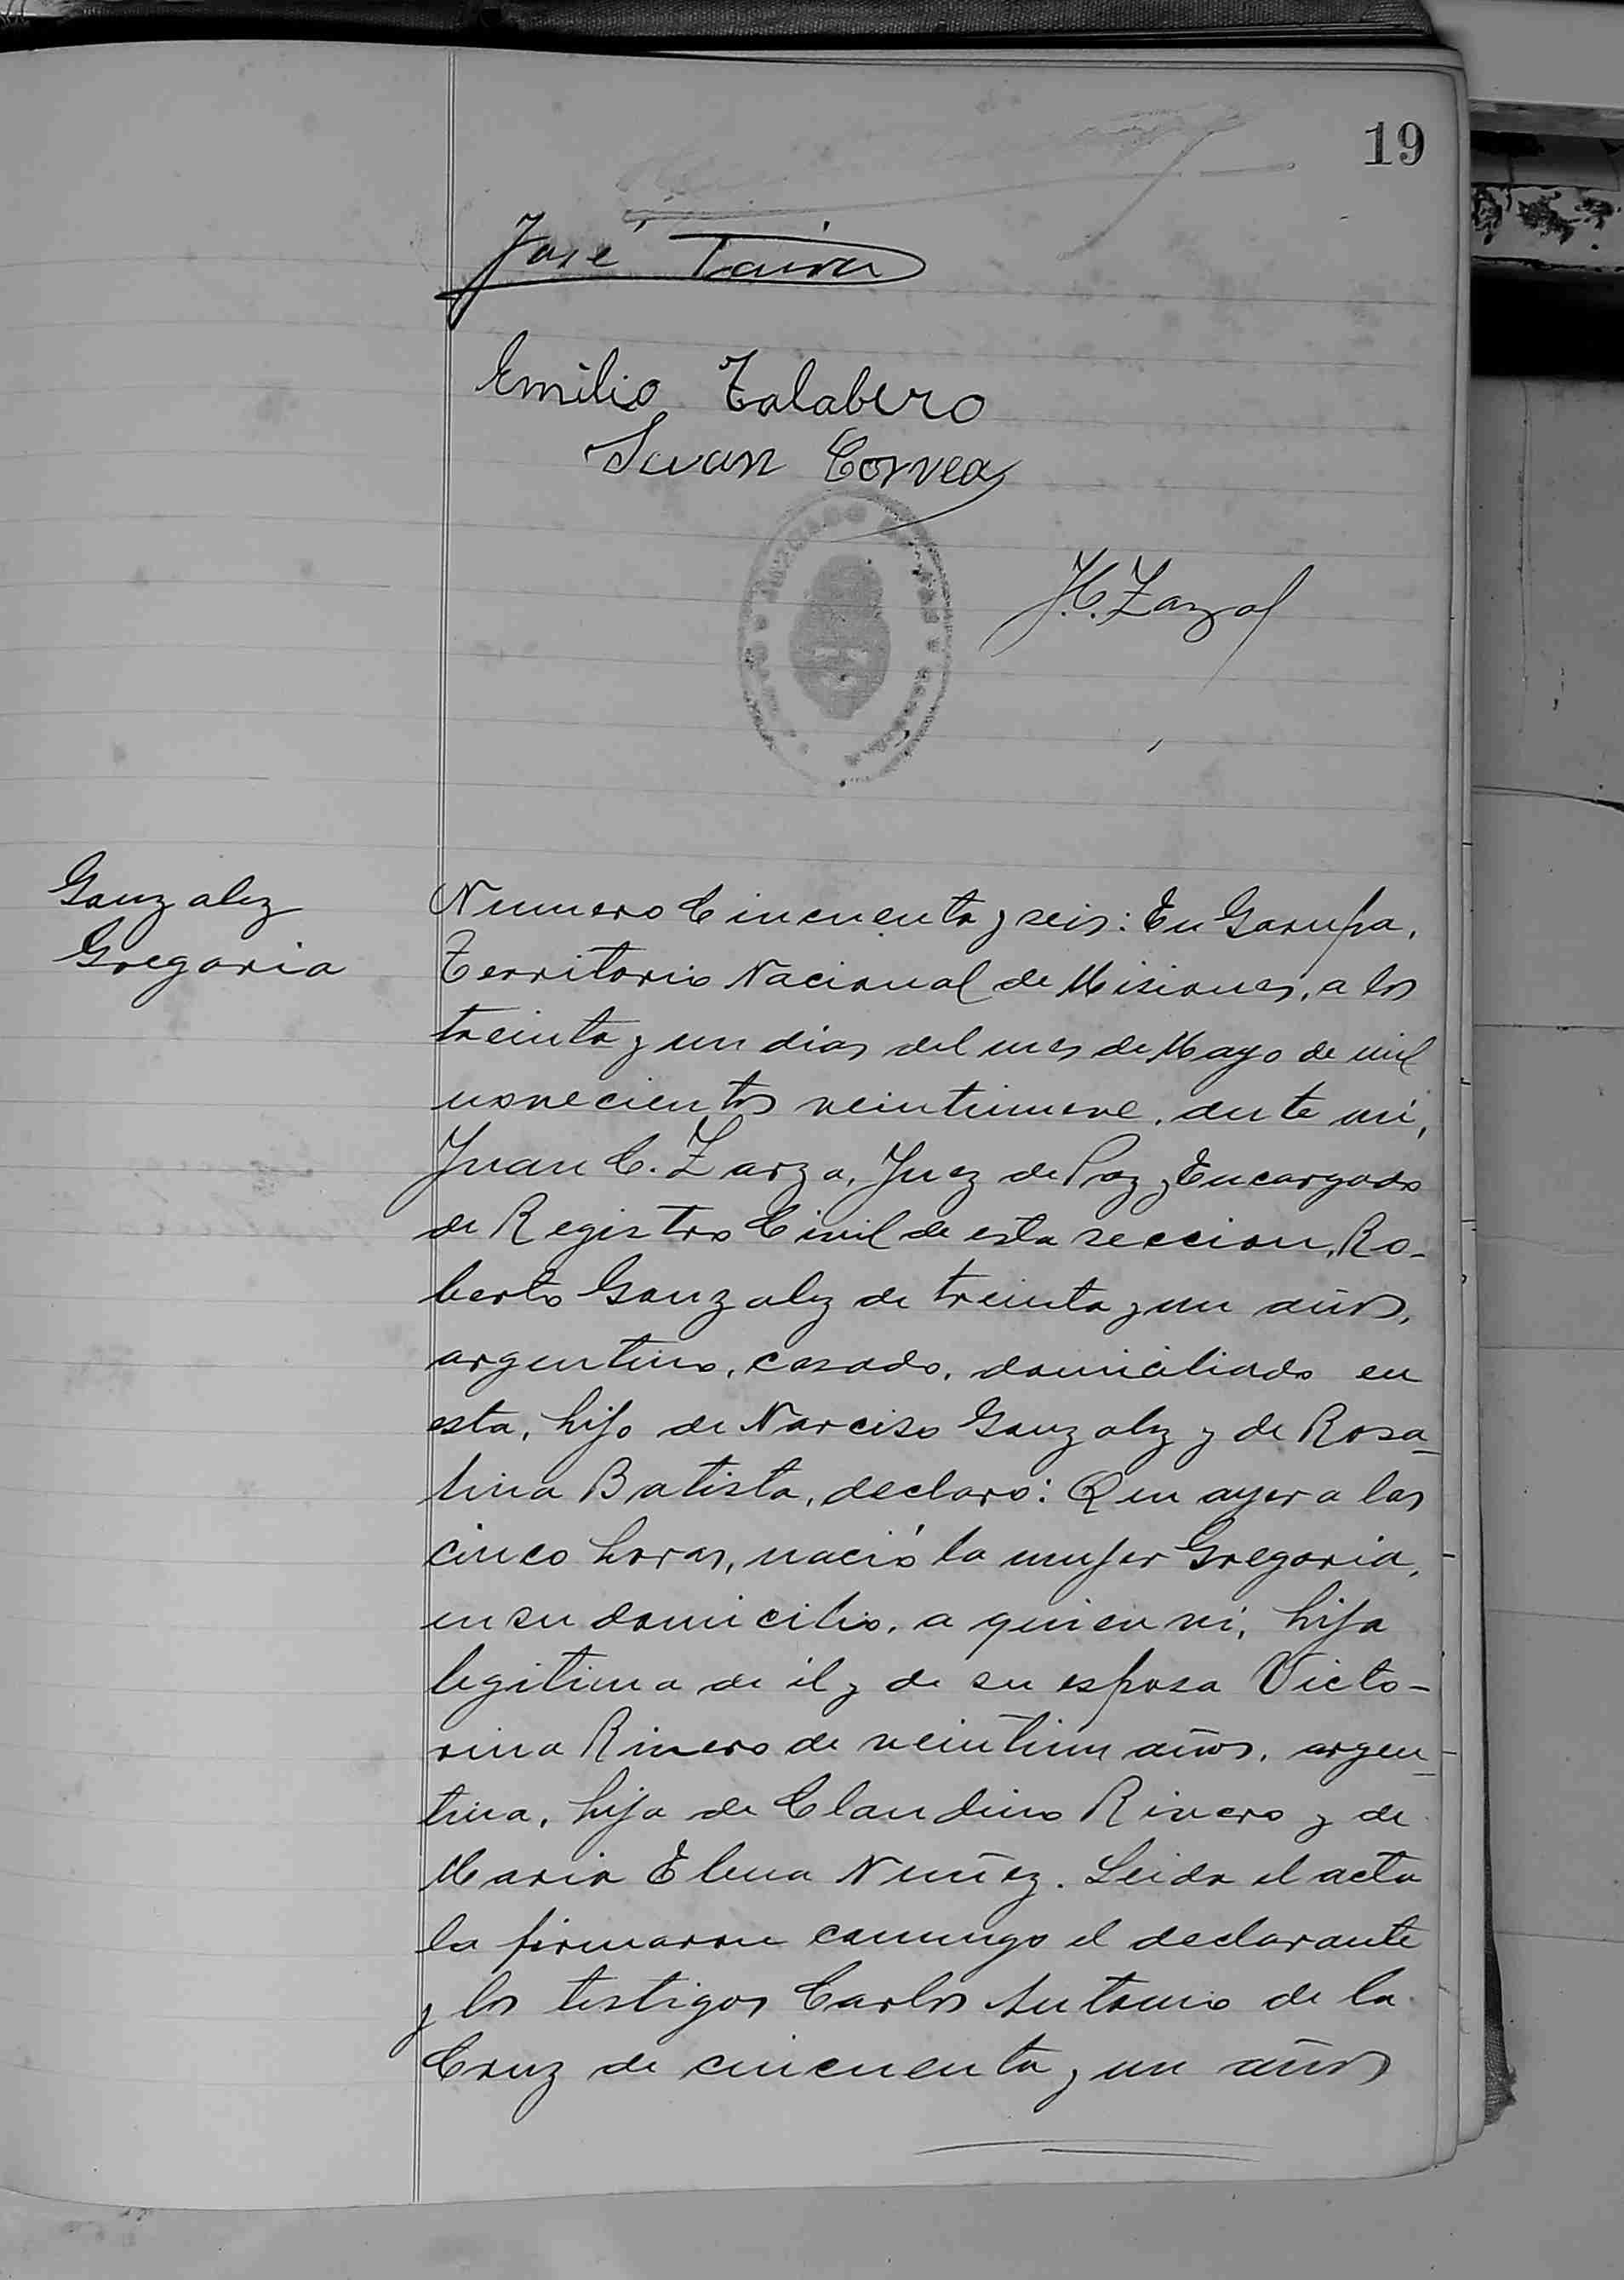 19
José
Emilio Talabero
Juan Correa
J.C. Zarza
Gonzalez
Gregoria
Numero Cincuenta y seis: En Garupa,
Territorio Nacional de Misiones, a los
treinta y un dias del mes de Mayo de mil
novecientos veintinueve, ante mi,
Juan C. Zarza, Juez de Paz y Encargado
de Registro Civil de esta seccion, Ro-
berto Gonzalez de treinta y un años,
argentino, casado, domiciliado en
esta, hijo de Narciso Gonzalez y de Rosa-
lina Batista, declaró: Que ayer a las
cinco horas, nació la mujer Gregoria,
en su domicilio, a quien vi, hija
legitima de él y de su esposa Victo-
rina Rivero de veintiun años, argen-
tina, hija de Claudino Rivero y de
Maria Elena Nuñez. Leida el acta
la firmaron conmigo el declarante
y los testigos Carlos Antonio de la
Cruz de cincuenta y un años